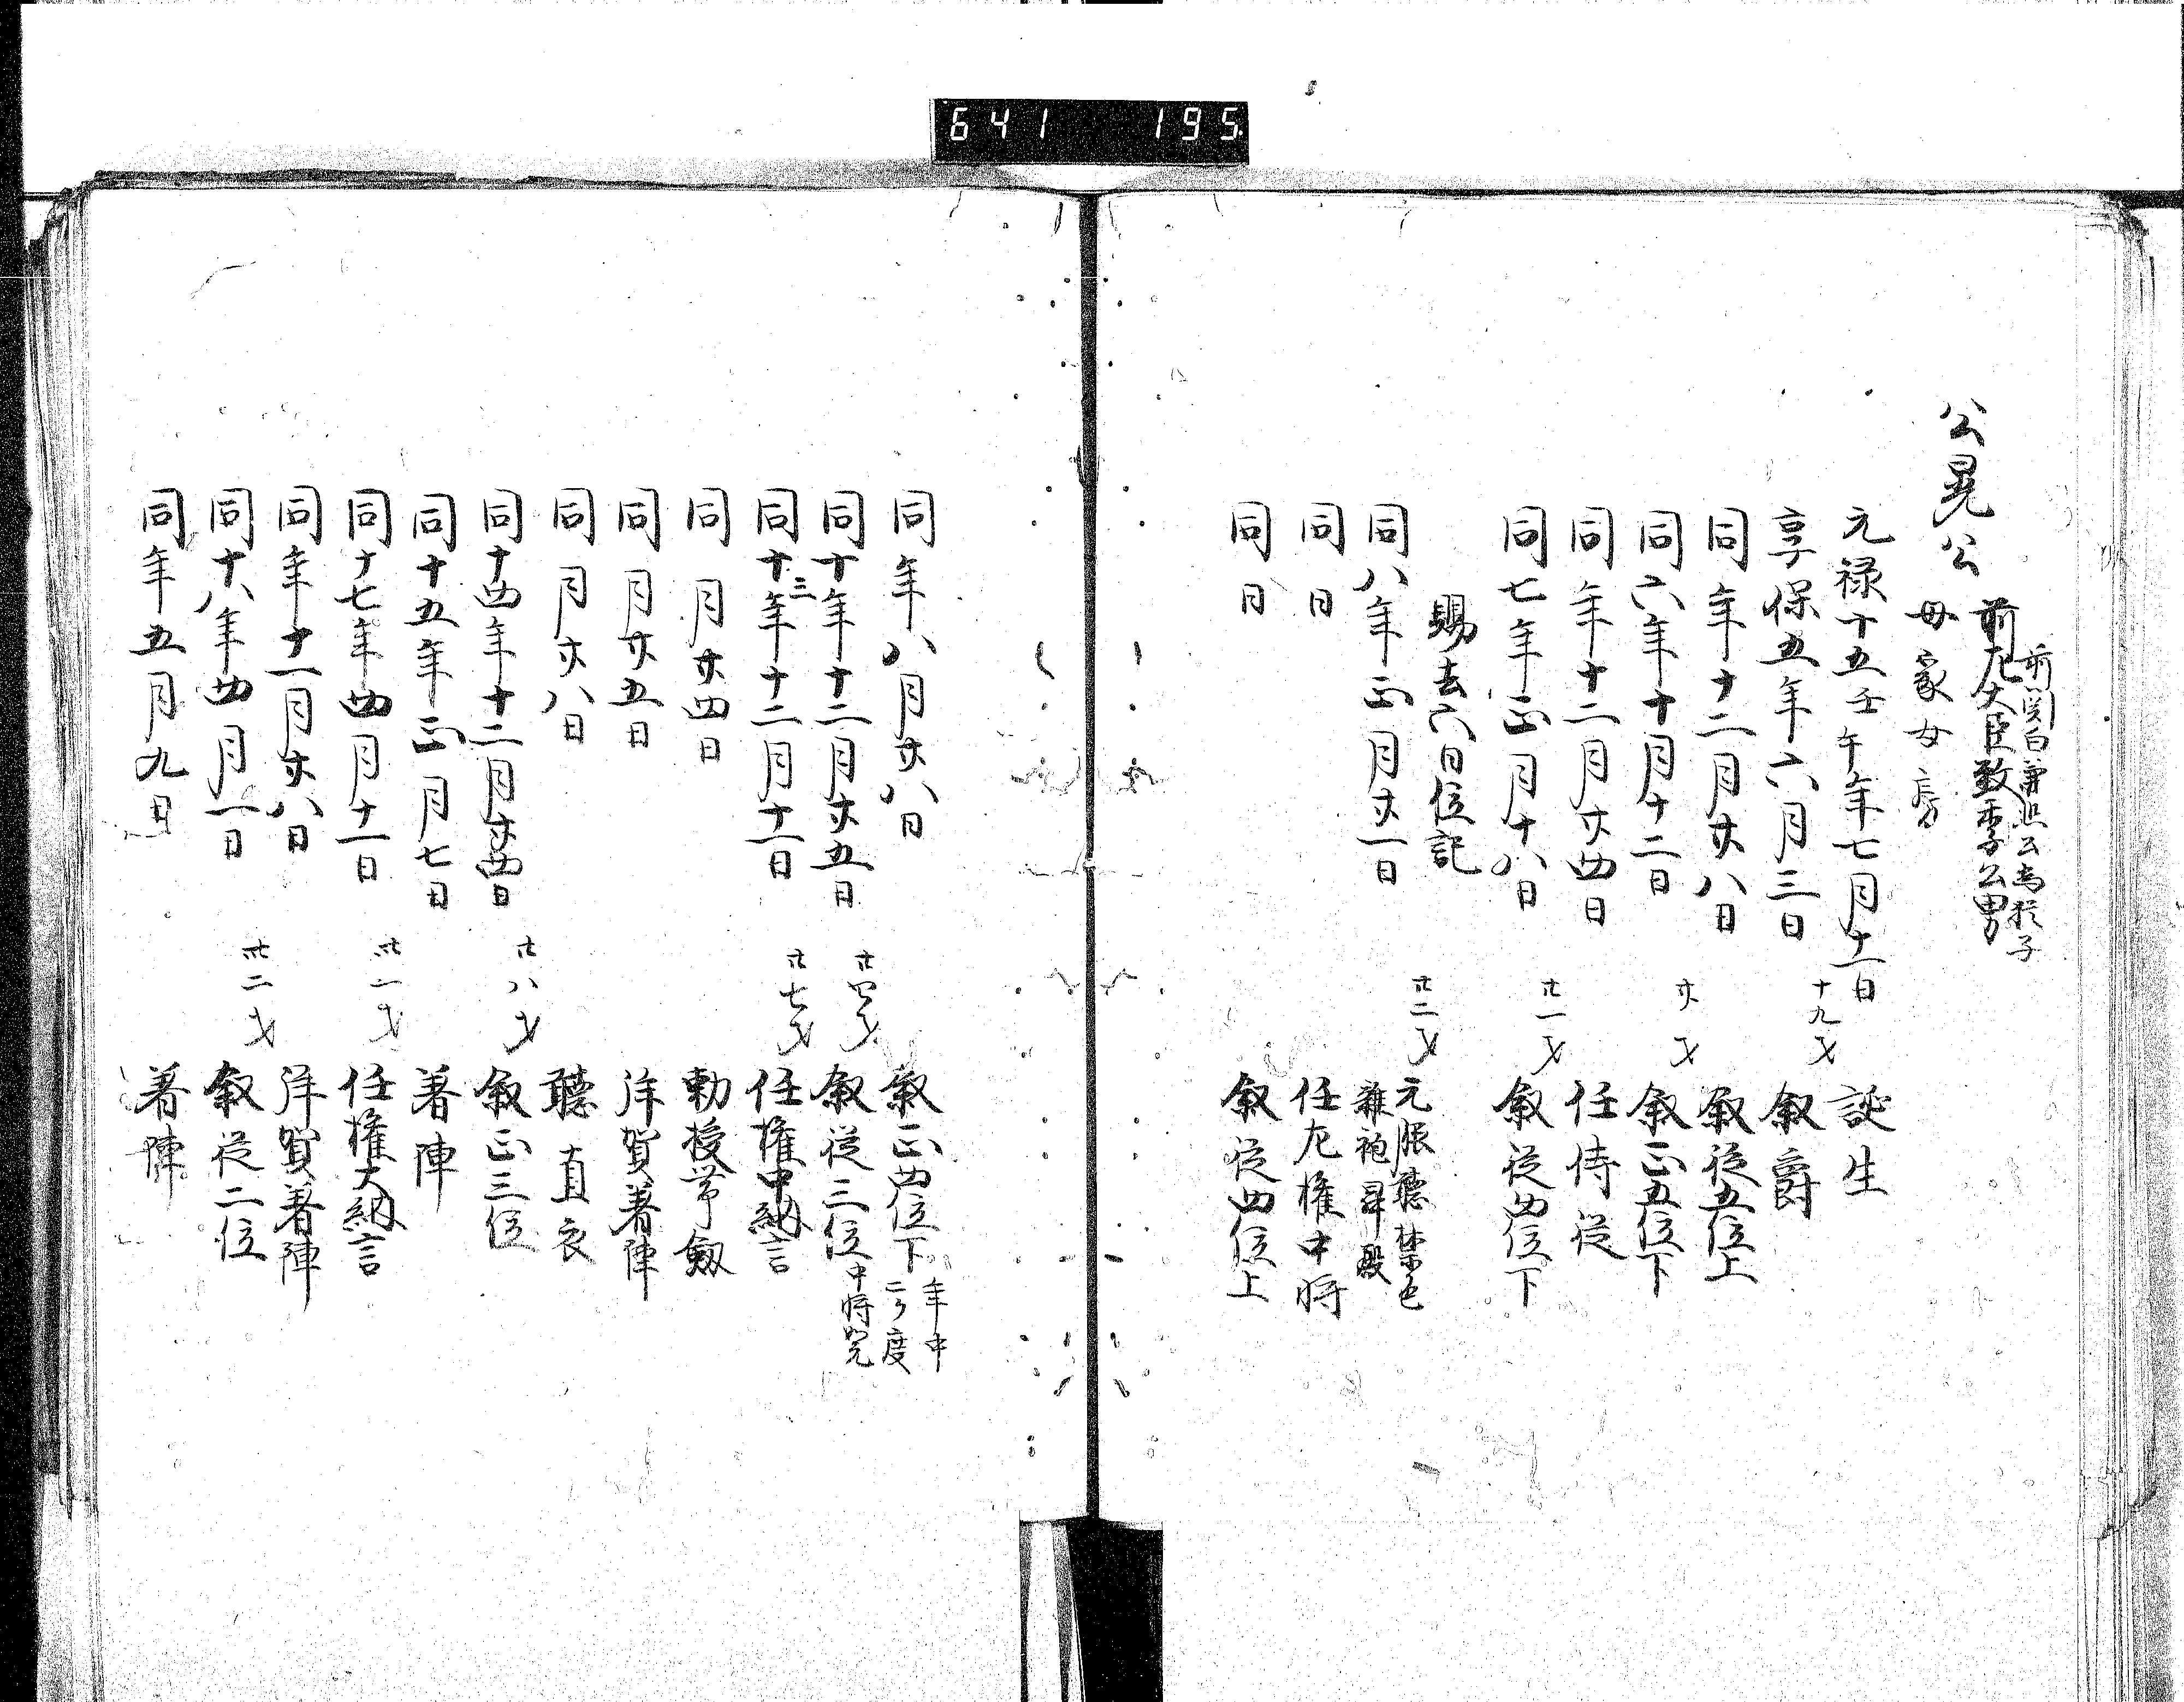 641 195
公晃公
前関白兼熙公為猶子
前左大臣致季公男
母家女房
元禄十五壬午年七月十一日 誕生
享保五年六月三日 十九才 叙爵
同年十二月廿八日 叙従五位上
同六年十月十二日 廿才 叙正五位下
同年十二月廿四日 任侍従
同七年正月十八日 廿一才 叙従四位下
賜去六日位記
同八年正月廿一日 廿二才 元服聴禁色
雑袍昇殿
同日 任左権中将
同日 叙従四位上
同年八月廿八日 叙正四位下 年中二ケ度
同十年十二月廿五日 廿四才 叙従三位 中将
同十三年十二月十一日 廿七才 任権中納言
同月廿四日 勅授帯剱
同月廿五日 拝賀著陣
同月廿八日 聴直衣
同十四年十二月廿四日 廿八才 叙正三位
同十五年正月七日 著陣
同十七年四月十一日 卅一才 任権大納言
同年十一月廿八日 拝賀著陣
同十八年四月一日 卅二才 叙従二位
同年五月九日 著陣